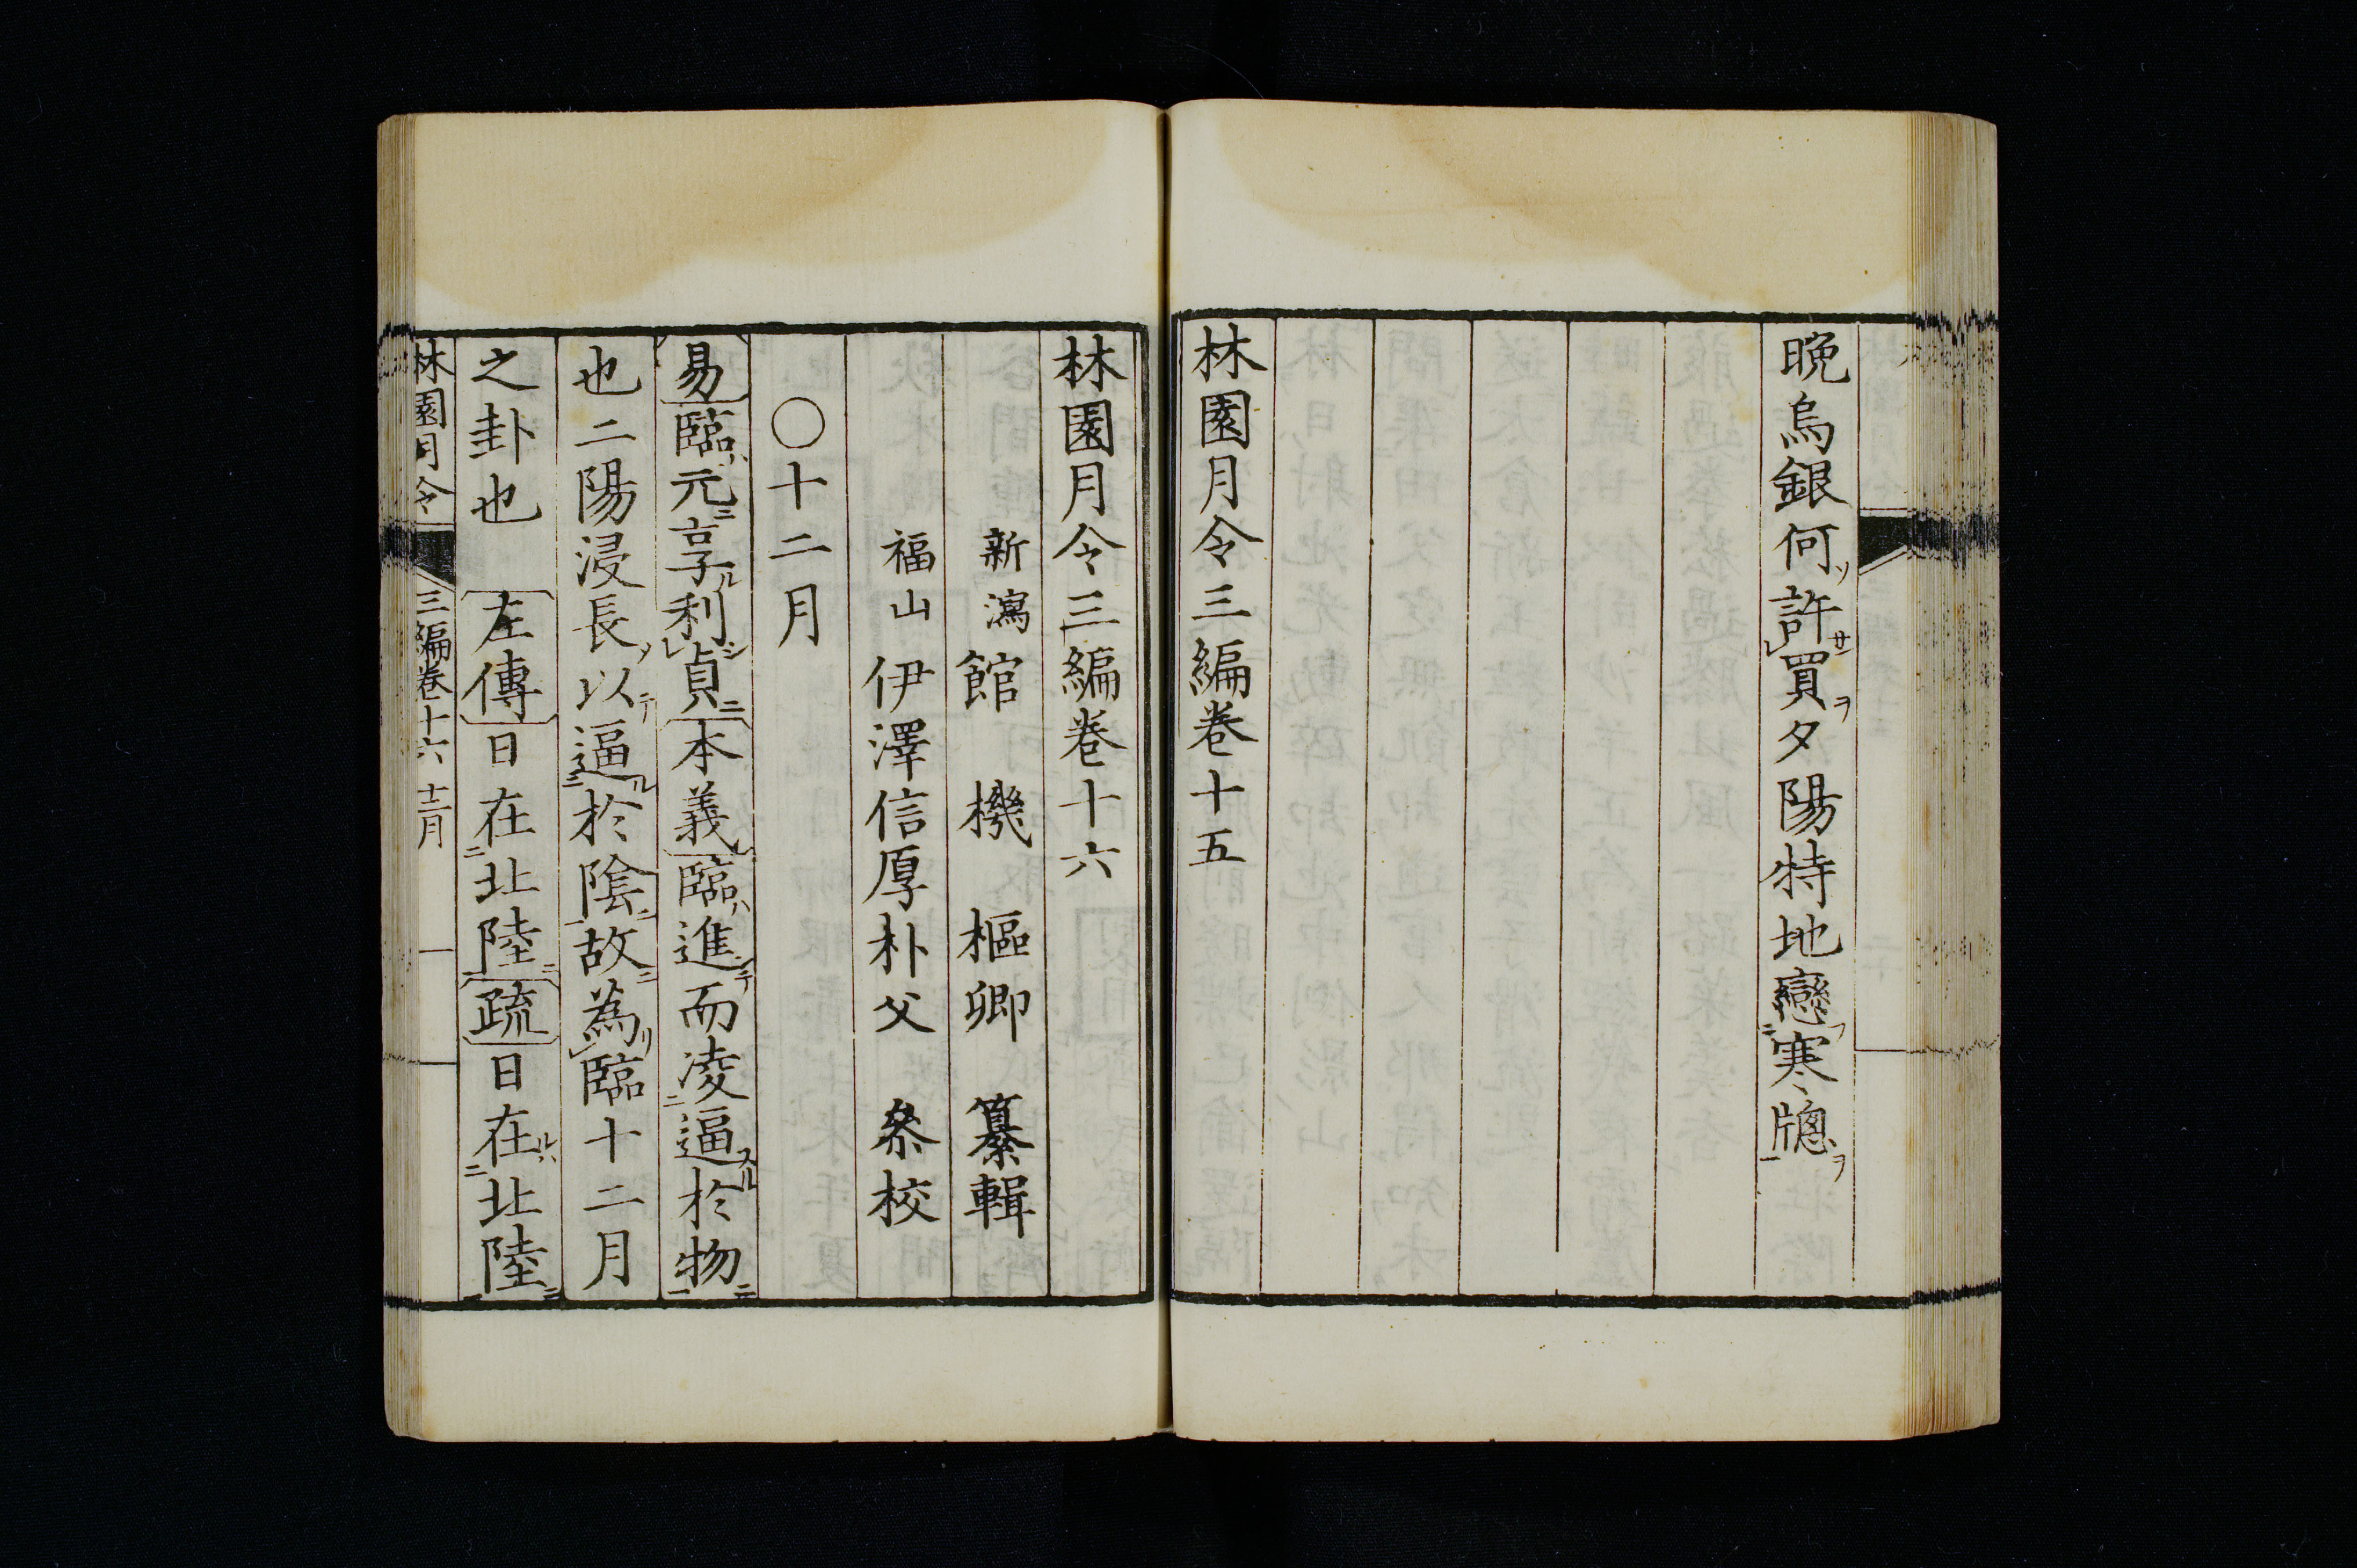 晩烏銀何許買夕陽特地戀寒牕
林園月令三編卷十五
林園月令三編卷十六
新瀉 館 機 樞卿 纂輯
福山 伊澤信厚朴父 叅校
〇十二月
易臨元亨利貞本義臨進而凌逼於物
也二陽浸長以逼於陰故為臨十二月
之卦也 左傳日在北陸疏日在北陸
林園月令 三編卷十六 十二月 一